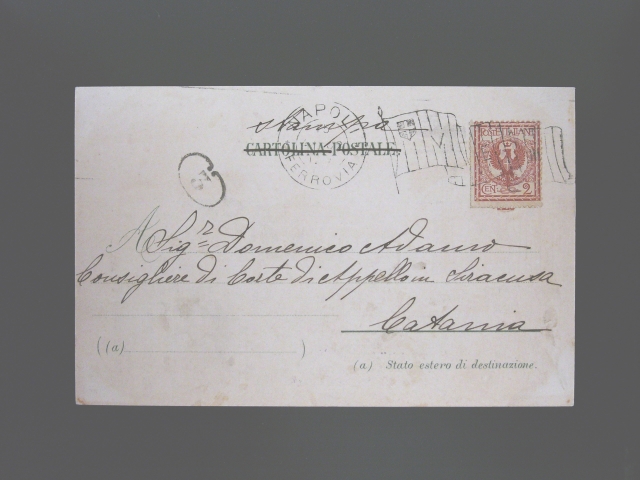 NAPOLI
FERROVIA
Stampa
CARTOLINA POSTALE
POSTE ITALIANE
CEN. 2
A Sigr. Domenico Adamo
Consigliere di Corte di Appello in Siracusa
Catania
(a)
(a) Stato estero di destinazione.